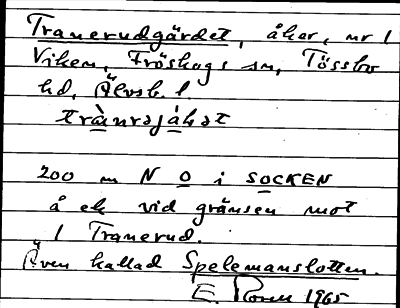 Tranerudgärdet, åker, nr 1
Viken, Fröskogs sn, Tössbo
hd, Älvsb. l.
200 m N O i SOCKEN
å ek vid gränsen mot
1 Tranerud.
Även kallad Spelemanslotten.
E. Noren 1965